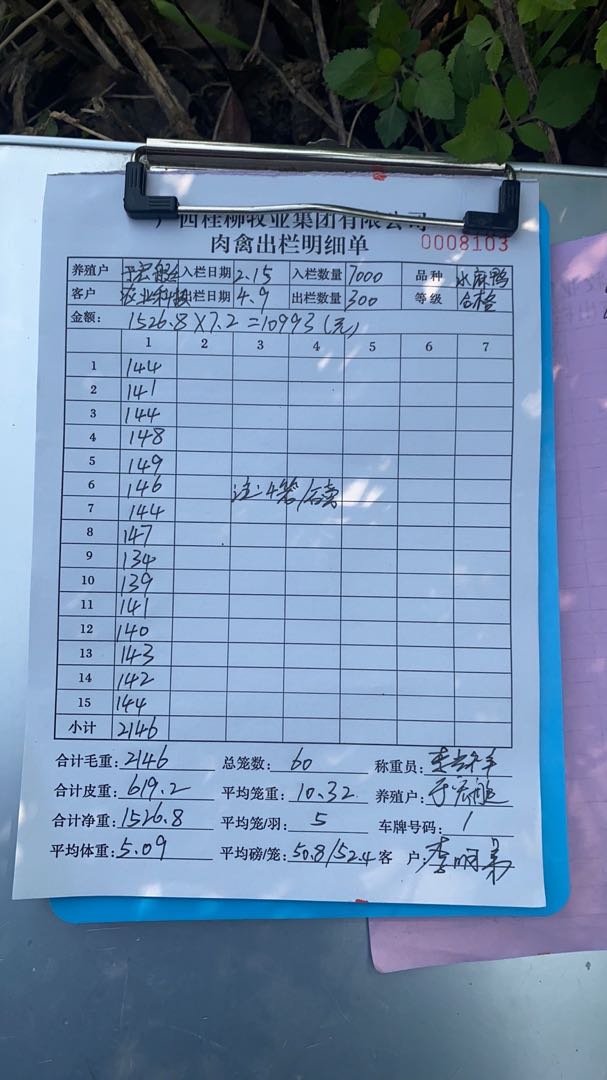 广西桂柳牧业集团有限公司
肉禽出栏明细单 0008103
养殖户 入栏日期 2.15 入栏数量 7000 品种 水麻鸭
客户 农业科技 出栏日期 4.9 出栏数量 300 等级 合格
金额: 1526.8×7.2=10993(元)
1 2 3 4 5 6 7
1 144
2 141
3 144
4 148
5 149
6 146 注:4笼/磅
7 144
8 147
9 134
10 139
11 141
12 140
13 143
14 142
15 144
小计 2146
合计毛重: 2146 总笼数: 60 称重员:
合计皮重: 619.2 平均笼重: 10.32 养殖户:
合计净重: 1526.8 平均笼/羽: 5 车牌号码: 1
平均体重: 5.09 平均磅/笼: 50.8/52.4 客户: 李明弟